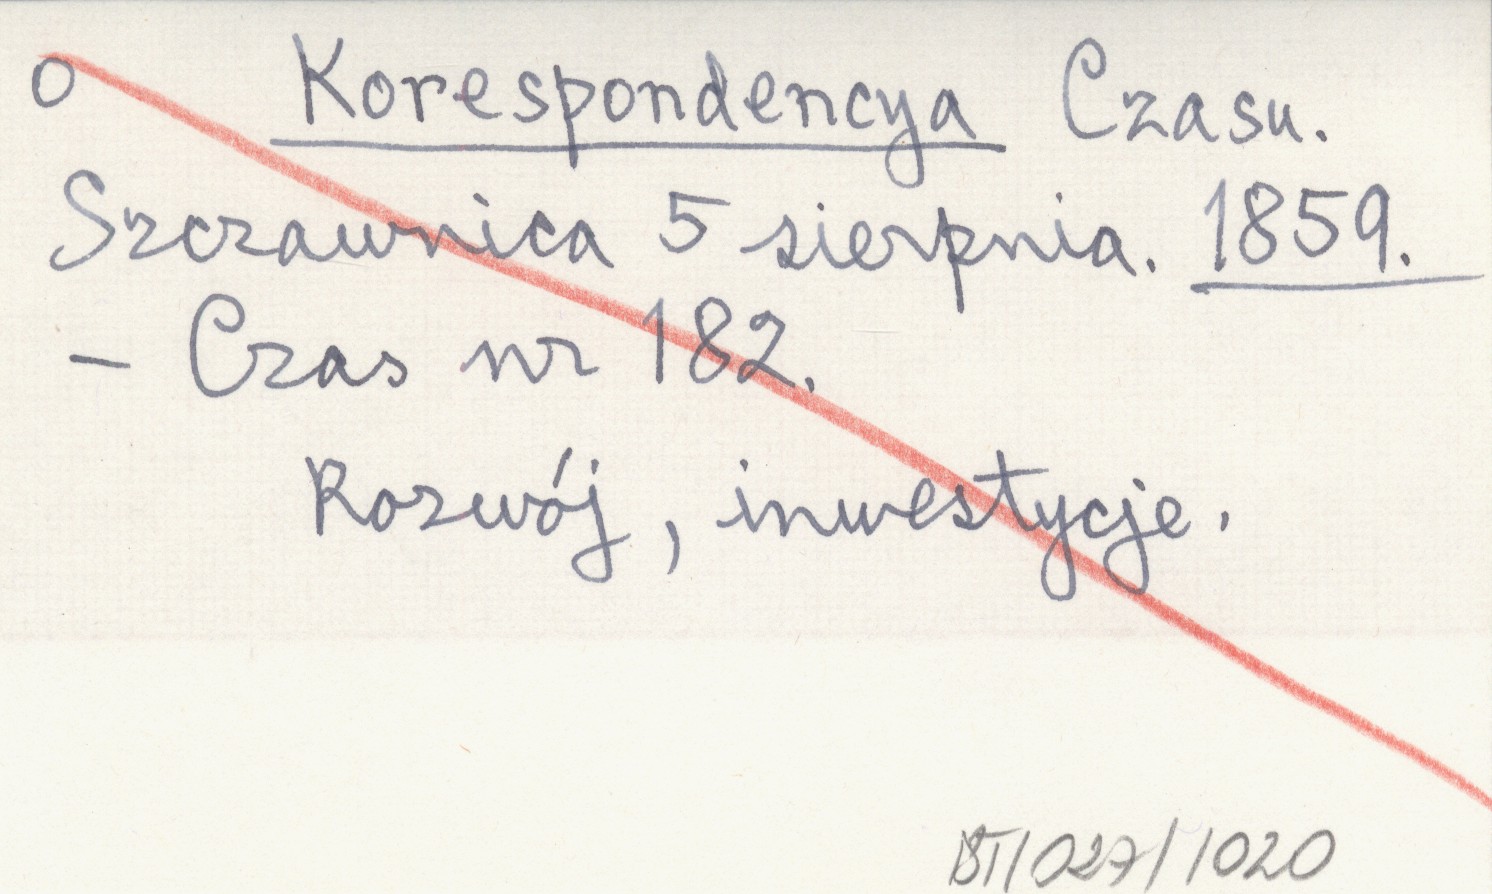 O Korespondencya Czasu.
Szczawnica 5 sierpnia. 1859.
– Czas nr 182.
Rozwój, inwestycje.
BT/027/1020